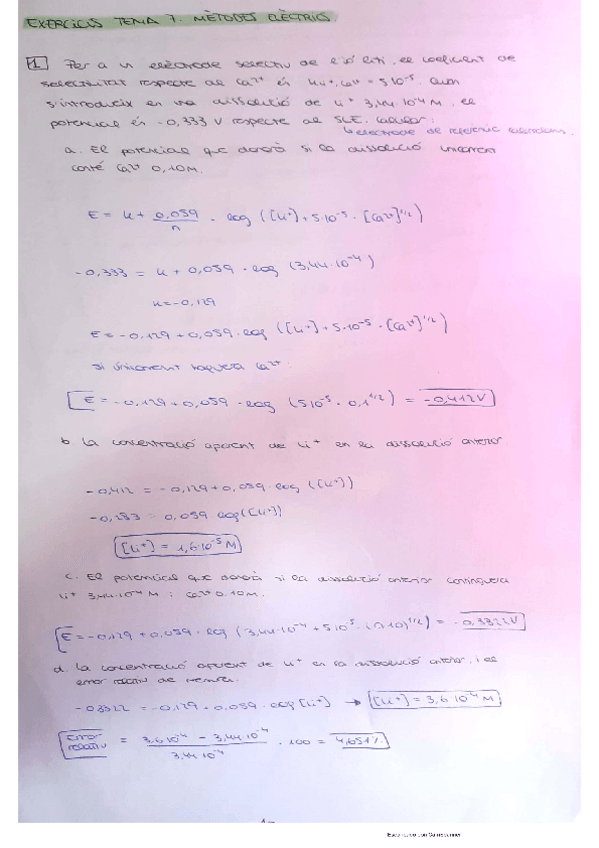 EXERCICIS TEMA 7. MÈTODES ELÈCTRICS.
1 Per a un elèctrode selectiu de l'ió liti, el coeficient de
selectivitat respecte al Ca²⁺ és K Li⁺, Ca²⁺ = 5·10⁻⁵. Quan
s'introdueix en una dissolució de Li⁺ 3,44·10⁻⁴ M, el
potencial és -0,333 V respecte al SCE. Calcular:
↳ elèctrode de referència
a. El potencial que donarà si la dissolució únicament
conté Ca²⁺ 0,10M.
E = K + 0,059/n · log ([Li⁺] + 5·10⁻⁵ · [Ca²⁺]^1/2)
-0,333 = K + 0,059 · log (3,44·10⁻⁴)
K = -0,129
E = -0,129 + 0,059 · log ([Li⁺] + 5·10⁻⁵ · [Ca²⁺]^1/2)
Si únicament haguera Ca²⁺:
E = -0,129 + 0,059 · log (5·10⁻⁵ · 0,1^1/2) = -0,412V
b. La concentració aparent de Li⁺ en la dissolució anterior
-0,412 = -0,129 + 0,059 · log ([Li⁺])
-0,283 = 0,059 log([Li⁺])
[Li⁺] = 1,6·10⁻⁵ M
c. El potencial que donarà si la dissolució anterior continguera
Li⁺ 3,44·10⁻⁴ M i Ca²⁺ 0.10M.
E = -0,129 + 0,059 · log (3,44·10⁻⁴ + 5·10⁻⁵ · (0,10)^1/2) = -0,3322V
d. La concentració aparent de Li⁺ en la dissolució anterior, i el
error relatiu de
-0,3322 = -0,129 - 0,059 · log [Li⁺] → [Li⁺] = 3,6·10⁻⁴ M
Error relatiu = 3,6·10⁻⁴ - 3,44·10⁻⁴ / 3,44·10⁻⁴ · 100 = 4,651%
Escaneado con CamScanner